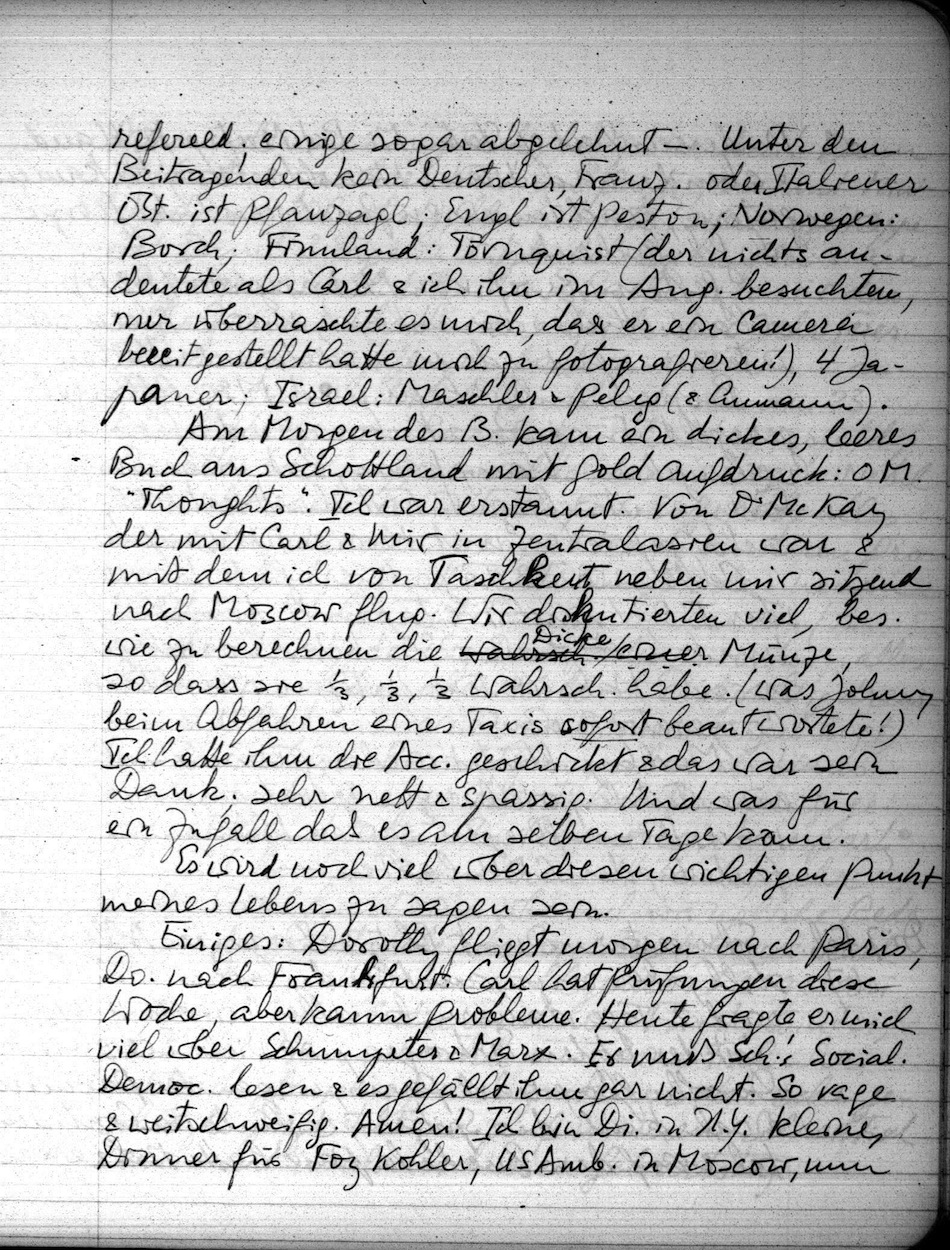 refereed, einige sogar abgelehnt —. Unter den
Beitragenden kein Deutscher, Franz. oder Italiener
Öst. ist Pfanzagl; Engl ist Peston; Norwegen:
Borch; Finnland: Törnquist (der nichts an-
deutete als Carl & ich ihn im Aug. besuchten,
nur überraschte es mich, das er ein Camera
bereit gestellt hatte mich zu fotografieren!), 4 Ja-
paner; Israel: Maschler & Peleg (& Aumann).
Am Morgen des B. kam ein dickes, leeres
Buch aus Schottland mit Gold aufdruck: OM.
"Thoughts". Ich war erstaunt. Von D. McKay
der mit Carl & mir in Zentralasien war &
mit dem ich von Taschkent neben mir sitzend
nach Moscow flug. Wir diskutierten viel, bes.
wie zu berechnen die Dicke einer Münze,
so dass sie 1/3, 1/3, 1/3 Wahrsch. habe. (Was Johnny
beim Abfahren eines Taxis sofort beantwortete!)
Ich hatte ihm die Acc. geschickt & das war sein
Dank. Sehr nett & spassig. Und was für
ein Zufall das es am selben Tage kam.
Es wird noch viel über diesen wichtigen Punkt
meines Lebens zu sagen sein.
Einiges: Dorothy fliegt morgen nach Paris,
Do. nach Frankfurt. Carl hat Prüfungen diese
Woche, aber kaum Probleme. Heute fragte er mich
viel über Schumpeter & Marx. Er muß Sch.'s Social.
Democ. lesen & es gefällt ihm gar nicht. So vage
& weitschweifig. Amen! Ich bin Di. in N.Y. kleines
Dinner für Foy Kohler, US Amb. in Moscow, nun